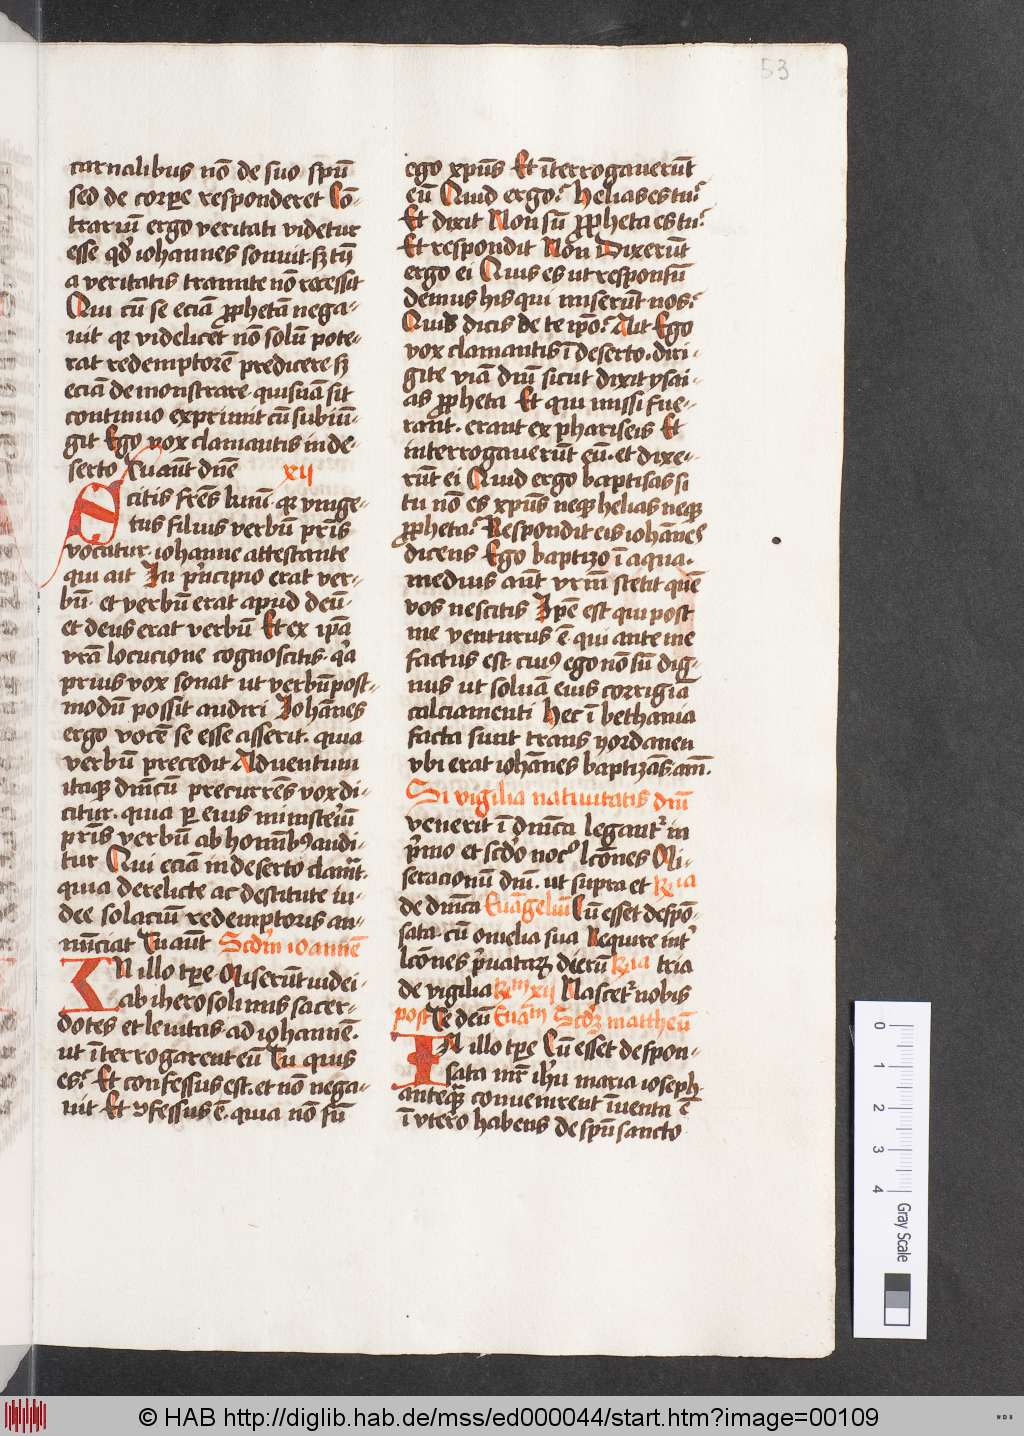 53
carnalibus nō de suo spū
sed de corpe responderet Cō-
trariū ergo veritati videtur
esse qd' iohannes sonuit· sz tn̄
a veritatis tramite nō recessit
Qui cū se eciā pphetā nega-
uit qr videlicet nō solū pote-
rat redemptorē predicere· sz
eciā demonstrare· quisnā sit
continuo exprimit cū subiū-
git Ego vox clamantis in de-
serto Tu aūt dn̄e xij
Scitis frēs kmī· qr vnige-
tus filius verbū pr̄is
vocatur· iohanne attestante
qui ait In p'ncipio erat ver-
bū· et verbū erat apud deū·
et deus erat verbū Et ex ip̄a
vrā locucione cognoscitis· q'a
prius vox sonat ut verbū post-
modū possit audiri Iohānes
ergo vocē se esse asserit· quia
verbū precedit Aduentum
itaqꝫ dn̄icū precurrēs vox di-
citur· quia p eius misteriū
pr̄is verbū ab homībꝰ audi-
tur Qui eciā in deserto clamāt·
quia derelicte ac destitute iu-
dee solaciū redemptoris an-
nūciat Tu aūt Scd'm ioannē
IN illo tpe Miserūt iudei
ab iherosolimis sacer-
dotes et leuitas· ad iohannē·
ut īterrogarent eū Tu quis
es? Et confessus est· et nō nega-
uit Et ꝯfessus ē· quia nō sū
ego xpūs Et īterrogauerūt
eū Quid ergo? Helias es tu?
Et dixit Non sū ppheta es tu?
Et respondit Non Dixerūt
ergo ei Quis es ut responsū
demus his qui miserūt nos?
Quid dicis de te ip̄o? Ait Ego
vox clamantis ī deserto· diri-
gite viā dn̄i sicut dixit ysai-
as ppheta Et qui missi fue-
rant· erant ex phariseis Et
interrogauerūt eū· et dixe-
rūt ei Quid ergo baptisas si
tu nō es xpūs neqꝫ helias neqꝫ
ppheta? Respondit eis iohānes
dicens Ego baptizo ī aqua·
medius aūt vrm̄ stetit quē
vos nescitis Ip̄e est qui post
me venturus ē· qui ante me
factus est· cuiꝰ ego nō sū dig-
nus ut soluā eius corrigiā
calciamenti Hec ī bethania
facta sunt trans yordanen
vbi erat iohānes baptizās· am̄·
Si vigilia natiuitatis dn̄i
venerit ī dn̄ica legant' in
p'mo et scd'o noct' lcōnes Mi-
seracionū dn̄i· ut supra et Rͥa
de dn̄ica Euāgeliū Cū esset despō-
sata· cū omelia sua Require int'
lcōnes p'uataꝝ dierū Rͥa tria
de vigilia Rm xij Nascet' nobis
post Te deū Euām Scd'ꝫ mattheū
IN illo tpe Cū esset despon-
sata mr̄ ih'u maria ioseph·
anteqꝫ conuenirent īuenta ē
ī vtero habens de spū sancto
0
1
2
3
4
Gray Scale
© HAB http://diglib.hab.de/mss/ed000044/start.htm?image=00109